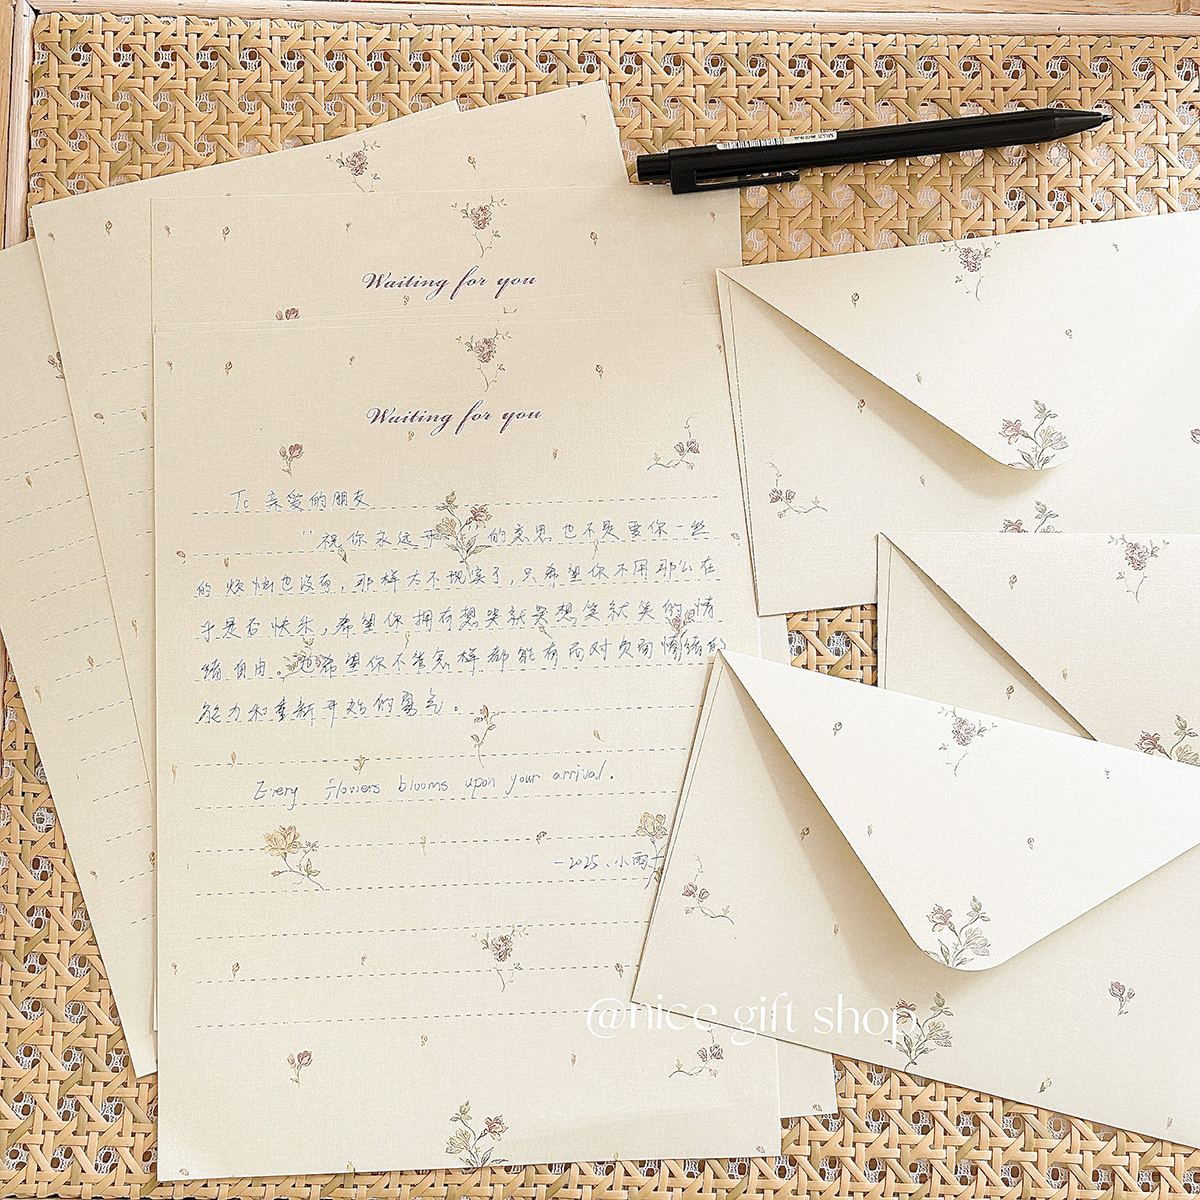 Waiting for you
Waiting for you
To 亲爱的朋友
"祝你永远开心"的意思也不是要你一丝
的烦恼也没有,那样太不现实了,只希望你不用那么在
乎是否快乐,希望你拥有想哭就哭想笑就笑的情
绪自由。也希望你不管怎样都能有面对负面情绪的
能力和重新开始的勇气。
Every flowers blooms upon your arrival.
-2025、小雨-
@nice gift shop